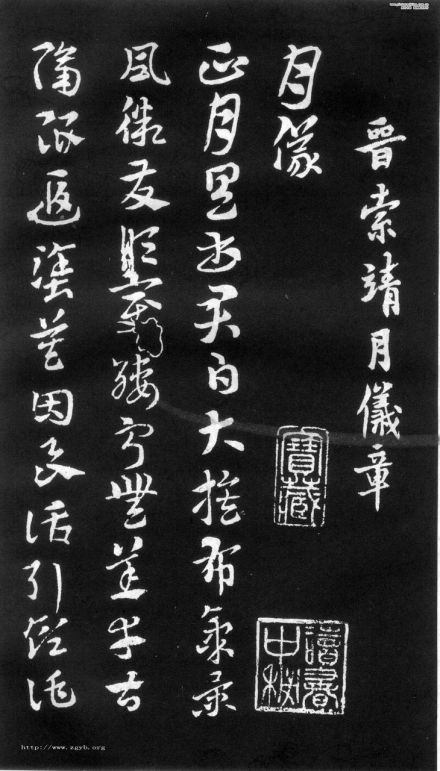 晉索靖月儀章
月儀
正月具書君白大蔟布氣景
風微發順變綏寧無恙幸甚
隔限遐塗莫因良話引領託
寶藏
讀書中秘
http://www.zgyb.org